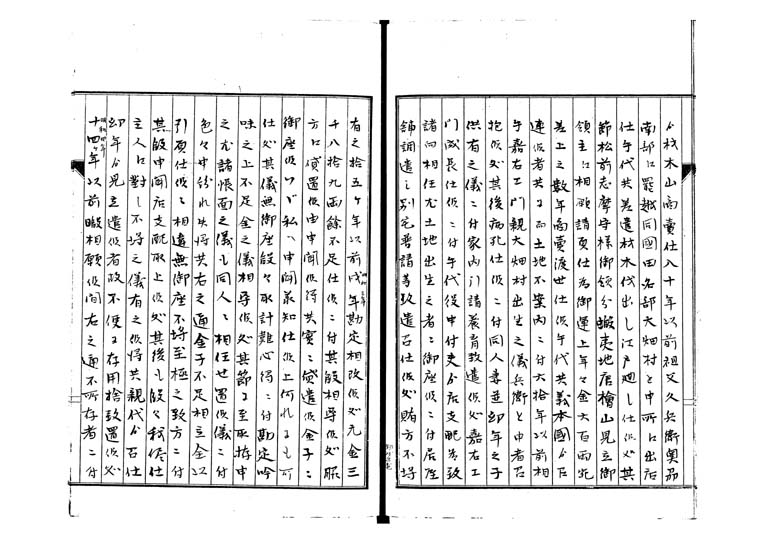 ゟ材木山商賣仕八十年以前祖父久兵衛奥州
南部江罷越同國田名部大畑村と申所江出店
仕手代共差遣材木伐出し江戸廻し仕候処其
節松前志摩守様御領分蝦夷地唐檜山見立御
領主江相願請負仕為御運上年々金百両宛
差上之数年商賣渡世仕候手代共義本國ゟ召
連候者共ニ而土地不案内ニ付六拾年以前相
手嘉右エ門親大畑村出生之儀兵衛と申者召
抱候処其後病死仕候ニ付同人妻並幼年之子
供有之儀ニ付家内引請養育致遣候処嘉右エ
門成長仕候ニ付手代役申付夫ゟ店支配為致
諸向相任尤土地出生之者ニ御座候ニ付居屋
舗調遣し別宅普請等致遣召仕候処賄方不埒
有之拾五ヶ年以前戌年勘定相改候処元金三
千八拾九両餘不足仕候ニ付其段相尋候処脇
方江貸置候由申聞候得共実ニ貸遣候金子ニ
御座候ハヽ私江申聞承知仕候上何れにも可
仕処其儀無御座段々取計難心得ニ付勘定吟
味之上不足金之儀相尋候処其節に至取拵申
之尤諸帳面之儀も同人江相任せ置候儀ニ付
色々申紛れ候得共右之通金子不足相立金以
引負仕候ニ相違無御座不埒至極之致方ニ付
其段申聞店支配取上候処其後も段々我侭仕
主人江對し不埒之儀有之候得共親代ゟ召仕
幼年ゟ見立遣候者故不便に存用捨致置候処
十四ヶ年以前暇相願候間右之通不所存者ニ付